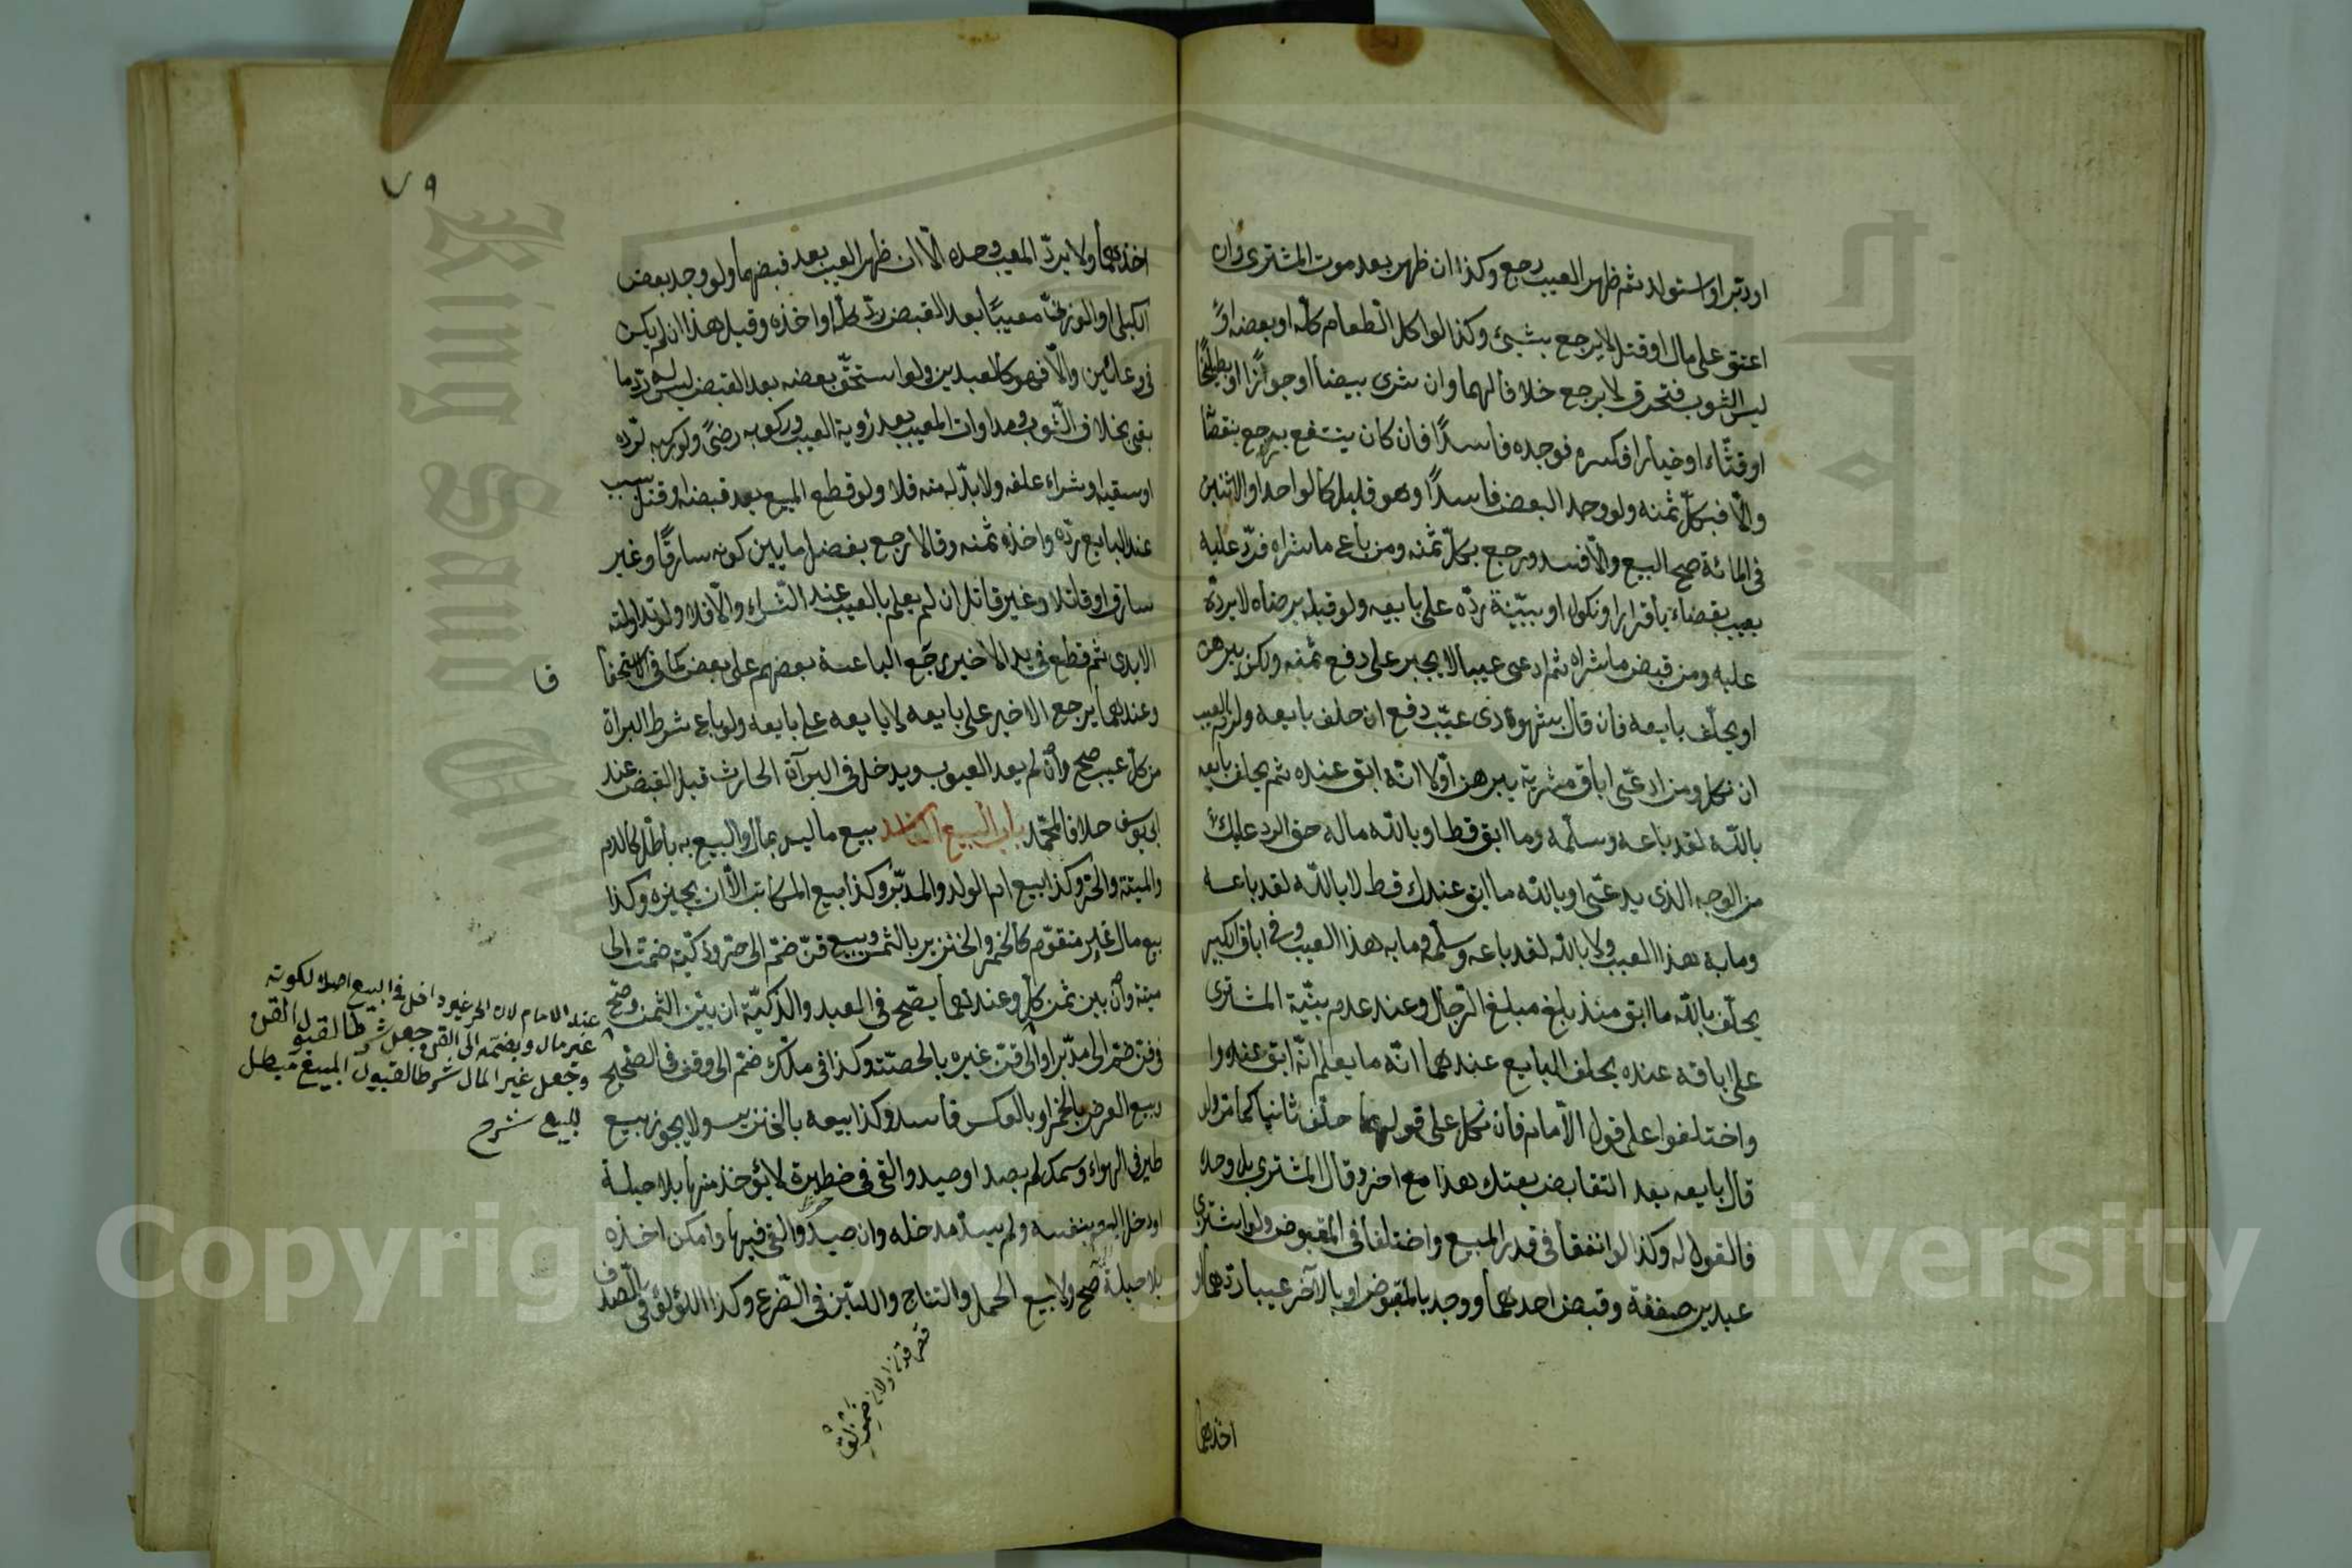 او دبّر او استولد ثم ظهر العيب رجع وكذا ان ظهر بعد موت المشترى وان
اعتق على مال او قتل لا يرجع بشيئ وكذا لو اكل الطعام كلّه او بعضه او
لبس الثوب فتحرق لا يرجع خلافا لهما وان شرى بيضا او جوزًا او بطيخًا
او قثّاء او خيارا فكسره فوجده فاسدًا فان كان ينتفع به رجع بنقصا
والّا فبكلّ ثمنه ولو وجد البعض فاسدًا وهو قليل كالواحد او الاثنين
فى المائة صح البيع والّا فسد ورجع بكلّ ثمنه ومن باع ما شراه فردّ عليه
بعيب بقضاء باقرار او نكول او ببيّنة ردّه على بايعه ولو قبله برضاه لا يردّه
عليه ومن قبض ما شراه ثم ادعى عيبا لا يجبر على دفع ثمنه ولكن يبرهن
او يحلّف بايعه فان قال شهودى غيّب دفع ان حلف بايعه ولزم العيب
ان نكل ومن ادعّى اباق مشريّه يبرهن اوّلا انّه ابق عنده ثم يحلف بايعه
بالله لقد باعه وسلّمه وما ابق قط او بالله ماله حق الرد عليك
من الوجه الذى يدعّى او بالله ما ابق عندك قط لا بالله لقد باعه
وما به هذا العيب ولا بالله لقد باعه وسلّمه وما به هذا العيب وفى اباق الكبير
يحلّف بالله ما ابق منذ بلغ مبلغ الرّجال وعند عدم بيّنة المشترى
على اباقه عنده يحلف البايع عندهما انّه ما يعلم انّه ابق عنده وا
واختلفوا على قول الامام فان نكل على قولهما حلّف ثانيا كما مرّ ولو
قال بايعه بعد التقابض بعتك هذا مع اخر وقال المشترى بل وحده
فالقول له وكذا لو اتفقا فى قدر المبيع واختلفا فى المقبوض ولو اشترى
عبدين صفقة وقبض احدهما ووجد بالمقبوض او بالآخر عيبا ردهما او
اخذهما
٧٩
اخذهما ولا يردّ المعيب وحده الّا ان ظهر العيب بعد قبضهما ولو وجد بعض
الكيلى او الوزنىّ معيبًا بعد القبض ردّ كلّه او اخذه وقيل هذا ان لم يكن
فى وعائين والّا فهو كالعبدين ولو استحقّ بعضه بعد القبض ليس له ردّ ما
بقى بخلاف الثّوب ومداوات المعيب بعد رؤية العيب وركوبه رضىً ولو ركبه لردّه
او سقيه او شراء علفه ولا بدّ له منه فلا ولو قطع المبيع بعد قبضه او قتل بسبب
عند البايع ردّه واخذ ثمنه وقالا رجع بفضل ما بين كونه سارقًا وغير
سارق او قاتلا وغير قاتل ان لم يعلم بالعيب عند الشّراء والّا فلا ولو تداولته
الايدى ثم قطع فى يد الاخير رجع الباعة بعضهم على بعض كما فى الاستحقا
ق
وعندهما يرجع الاخير على بايعه لا بايعه على بايعه ولو باع بشرط البراة
من كل عيب صح وان لم يعد العيوب ويدخل فى البرآة الحارث قبل القبض عند
ابى يوسف خلافا لمحمّد باب البيع الفاسد بيع ما ليس بمال والبيع به باطل كالدم
والميتة والحرّ وكذا بيع ام الولد والمدبّر وكذا بيع المكاتب الّا ان يجيزه وكذا
بيع مال غير متقوّم كالخمر والخنزير بالثمن وبيع قنّ ضمّ الى حرّ وذكيّة ضمّت الى
ميتة وان بين ثمن كلّ وعندهما يصّح فى العبد والذكيّة ان بيّن الثمن وصّح
فى قن ضم الى مدبّر او الى قنّ غيره بالحصّة وكذا فى ملك ضمّ الى وقف فى الصّحيح
وبيع العرض بالخمر او بالعكس فاسد وكذا بيعه بالخنزير ولا يجوز بيع
طير فى الهواء وسمك لم يصد او صيد والقى فى خظيرة لا يؤخذ منها بلا حيلة
او دخل اليه بنفسه ولم يسدّ مدخله وان صيد والقى فيها وامكن اخذه
بلا حيلة صح ولا بيع الحمل والنتاج واللبن فى الضّرع وكذا اللؤلؤ فى الصّدف
عند الامام لان الحر غير داخل فى البيع اصلا لكونه
غير مال وبضمّه الى القن جعل شرطا لقبول القن
وجعل غير المال شرطا لقبول المبيع مبطل
للبيع شرح
Copyright © King Saud University
King Saud University